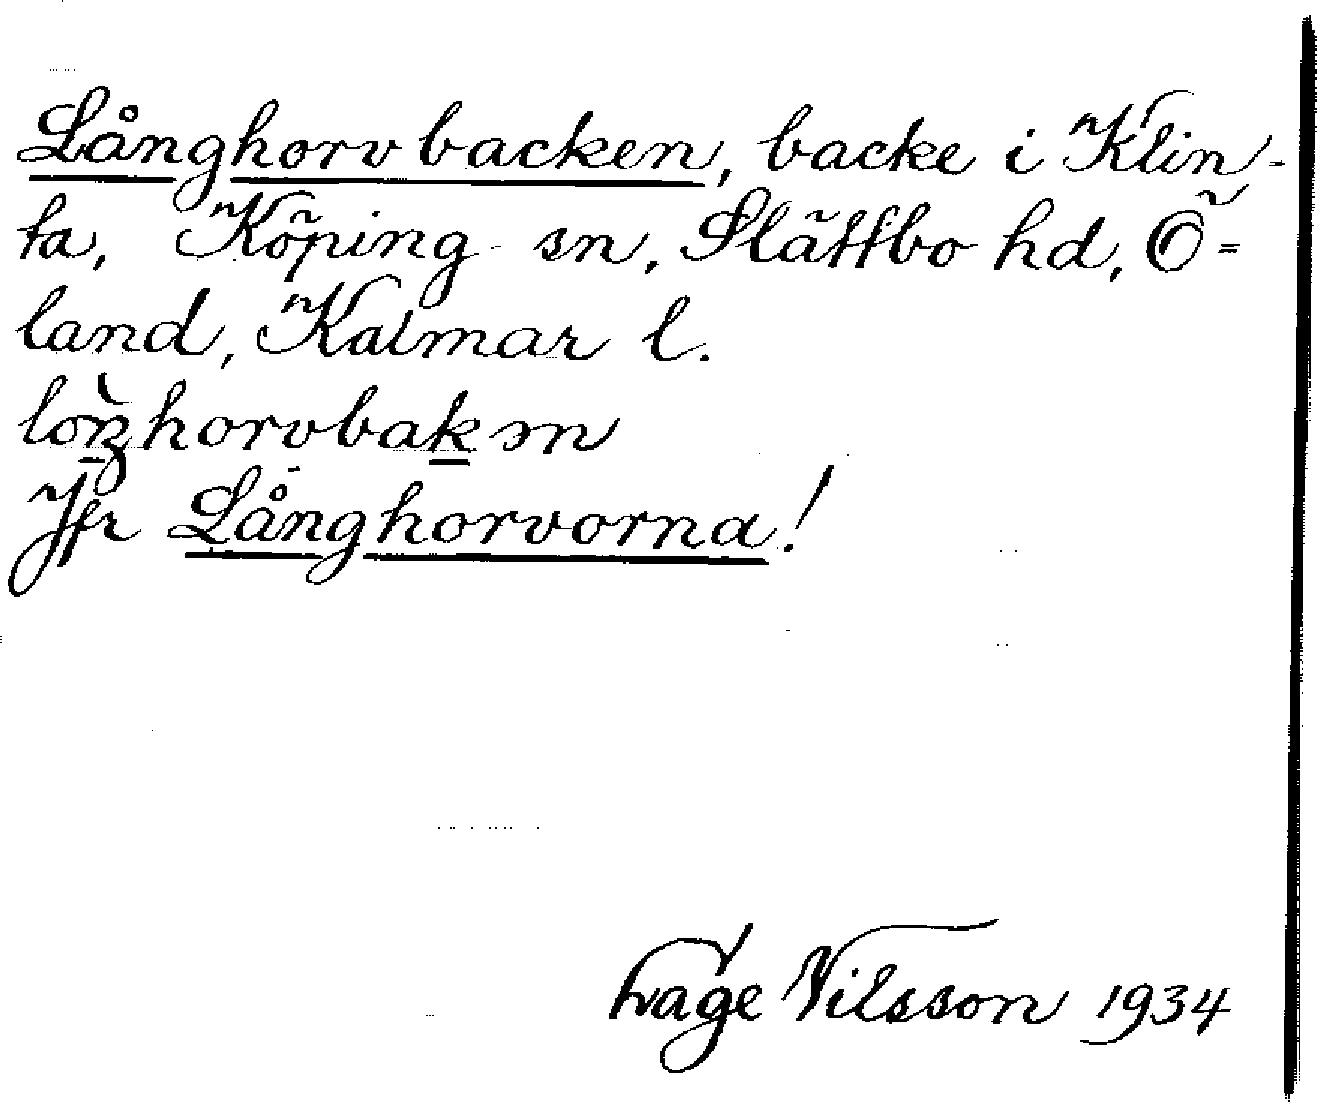 Långhorvbacken, backe i Klin-
ta, Köping sn, Slättbo hd, Ö=
land, Kalmar l.
Jfr Långhorvorna!
Nilsson 1934